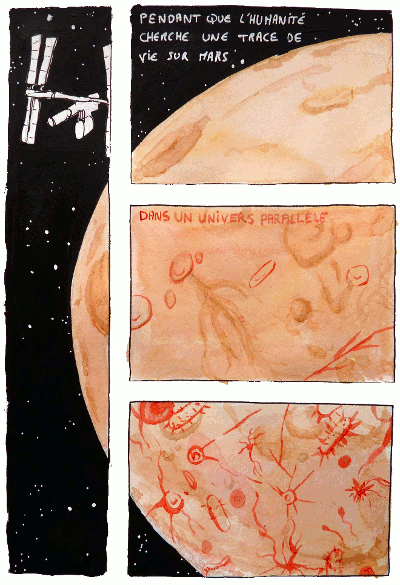 PENDANT QUE L'HUMANITÉ
CHERCHE UNE TRACE DE
VIE SUR MARS...
DANS UN UNIVERS PARALLÈLE